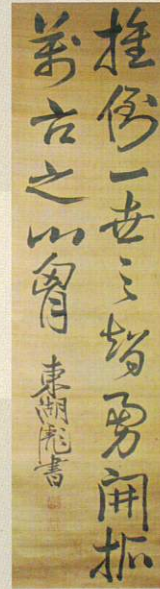 推倒一世之智勇開拓
萬古之心胷
東湖彪書